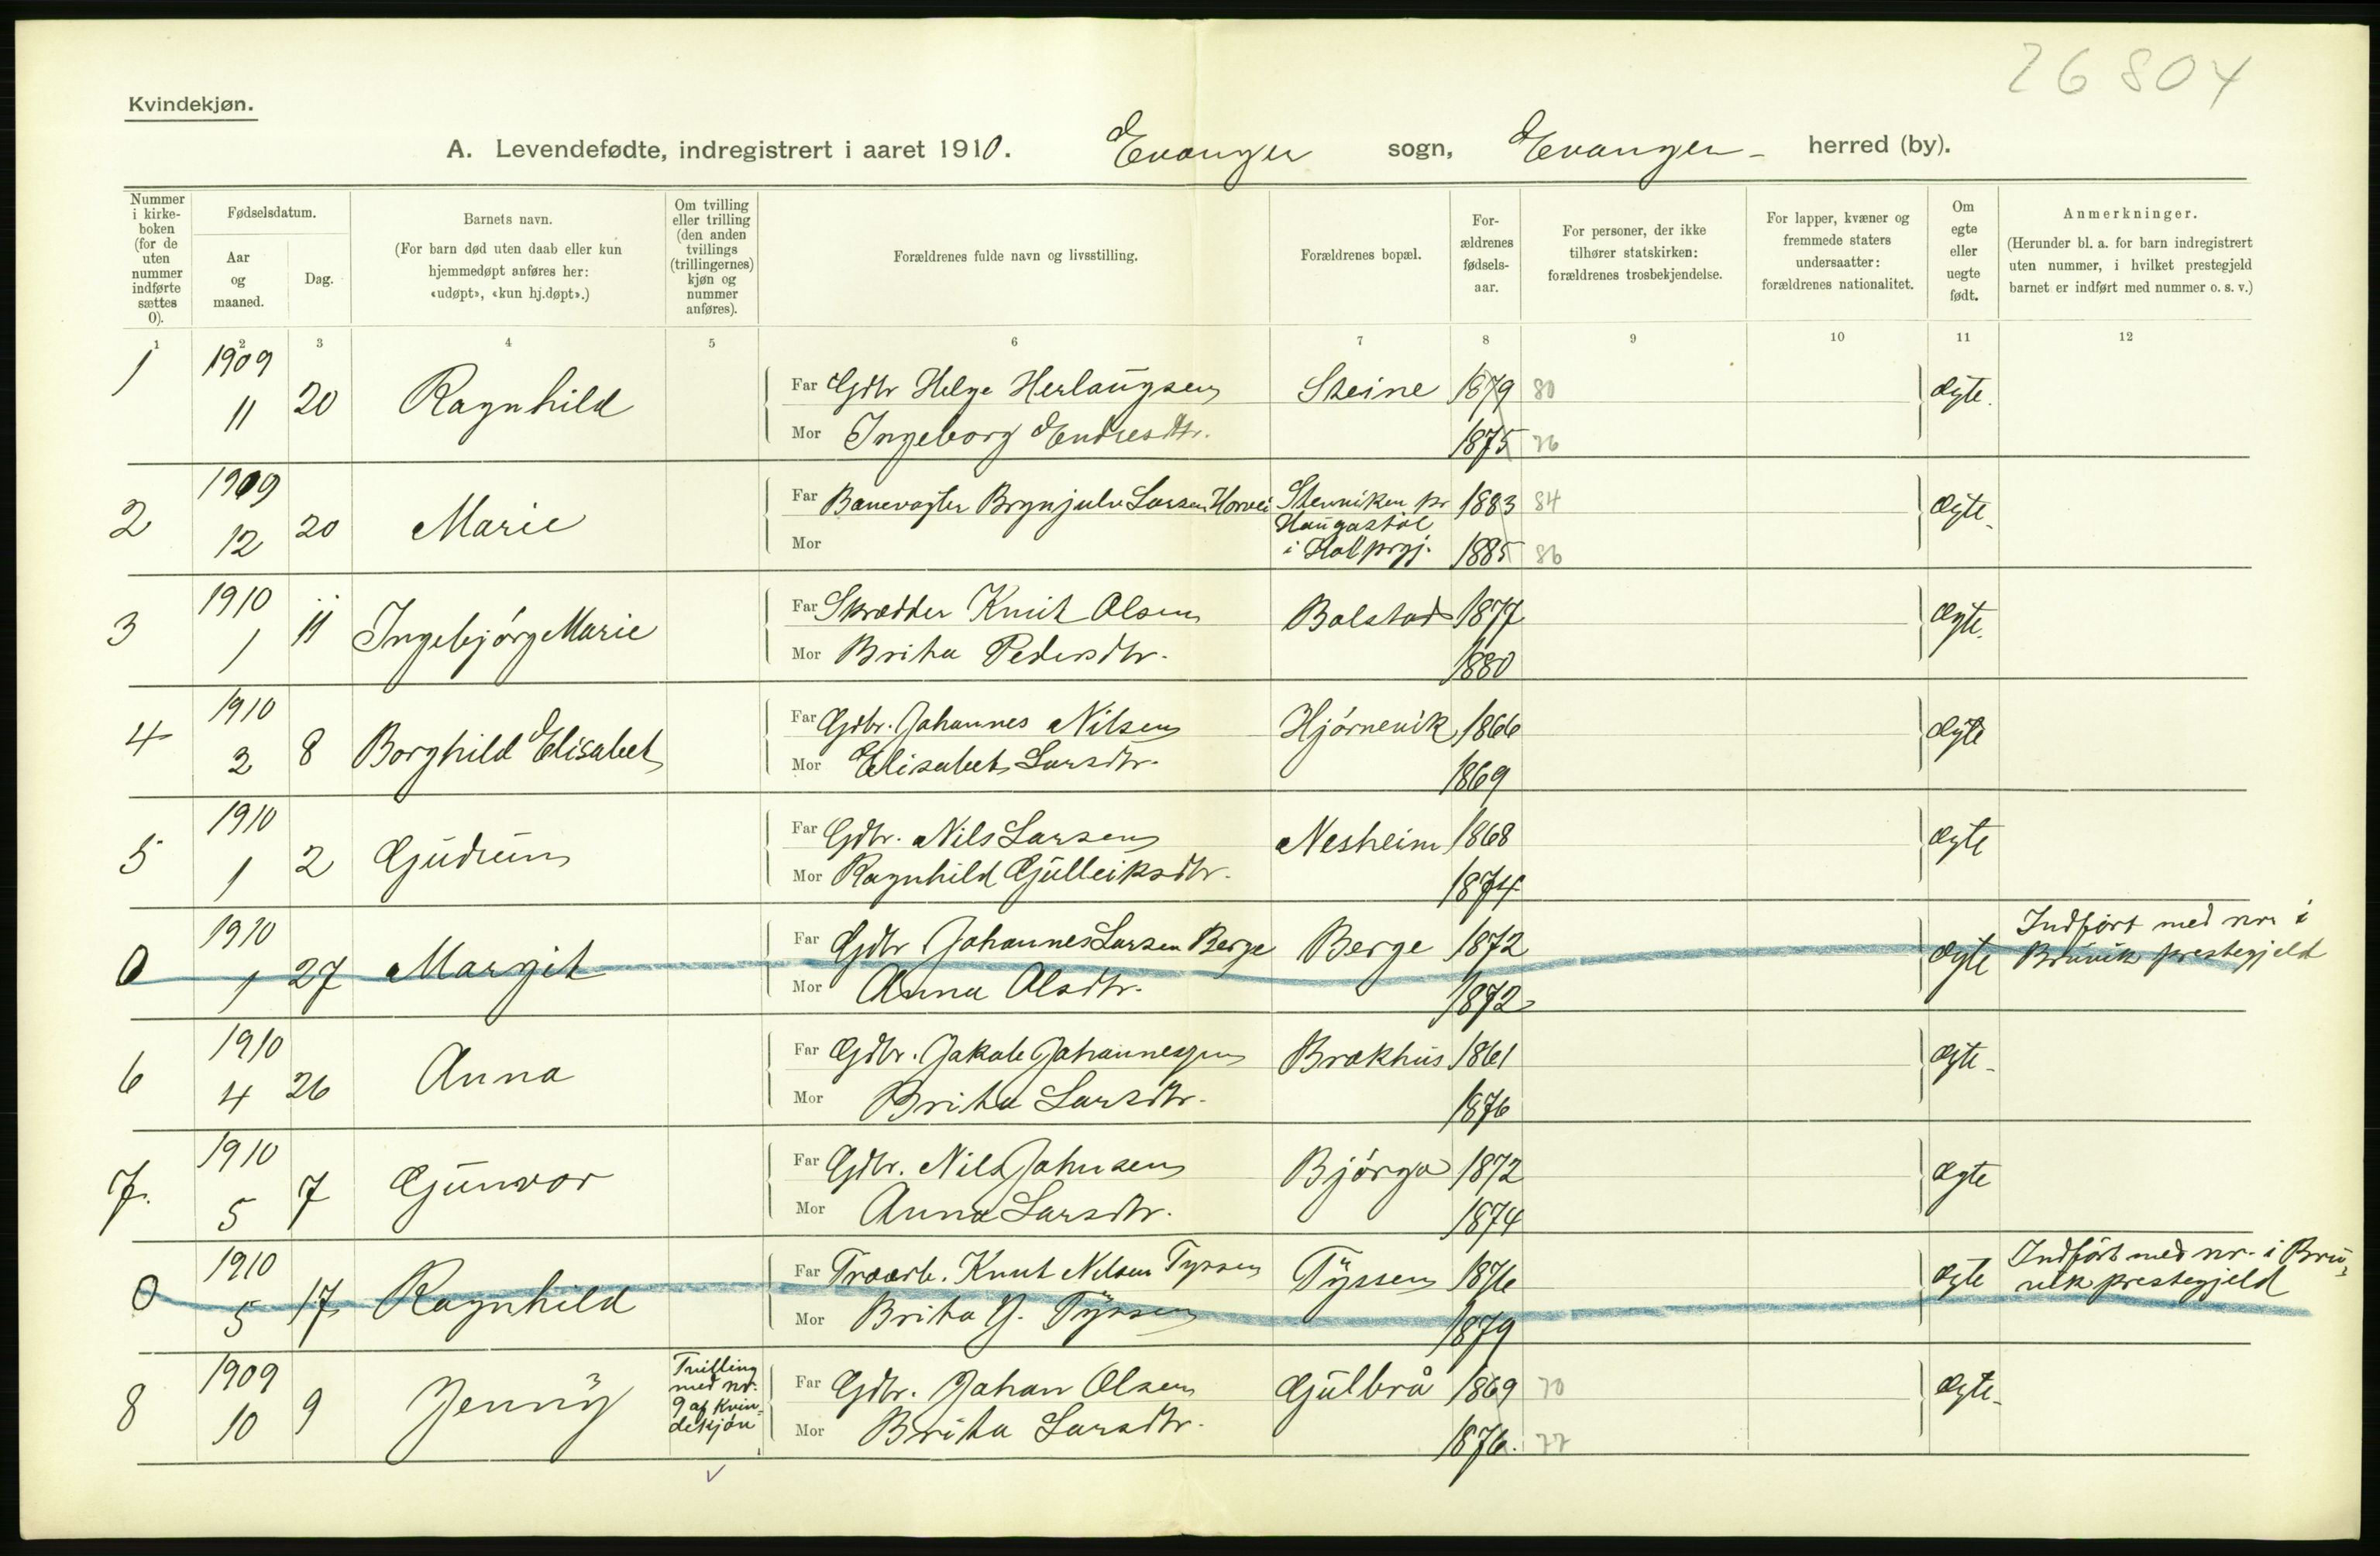 26804
Kvindekjøn.
A. Levendefødte, indregistrert i aaret 1910. Evanger sogn, Evanger herred (by).
Nummer i kirkeboken (for de uten nummer indførte sættes 0).
Fødselsdatum.
Aar og maaned.
Dag.
Barnets navn.
(For barn død uten daab eller kun hjemmedøpt anføres her: «udøpt», «kun hj.døpt».)
Om tvilling eller trilling (den anden tvillings (trillingernes) kjøn og nummer anføres).
Forældrenes fulde navn og livsstilling.
Forældrenes bopæl.
For-ældrenes fødsels-aar.
For personer, der ikke tilhører statskirken: forældrenes trosbekjendelse.
For lapper, kvæner og fremmede staters undersaatter: forældrenes nationalitet.
Om egte eller uegte født.
Anmerkninger.
(Herunder bl. a. for barn indregistrert uten nummer, i hvilket prestegjeld barnet er indført med nummer o. s. v.)
1 2 3 4 5 6 7 8 9 10 11 12
1 1909 11 20 Ragnhild Far Gdbr Helge Herlaugsen Steine 1879 80 ægte.
Mor Ingeborg Endresdtr. 1875 76
2 1909 12 20 Marie Far Banevogter Brynjulv Larsen Horvei pr Haugastøl i Hol prgj. 1883 84 ægte
Mor 1885 86
3 1910 1 11 Ingebjørg Marie Far Skrædder Knut Olsen Bolstad 1877 ægte.
Mor Brita Pedersdtr. 1880
4 1910 3 8 Borghild Elisabet Far Gdbr. Johannes Nilsen Hjørnevik 1866 ægte
Mor Elisabet Larsdtr. 1869
5 1910 1 2 Gudrun Far Gdbr. Nils Larsen Nesheim 1868 ægte
Mor Ragnhild Gulleiksdtr. 1874
0 1910 1 27 Margit Far Gdbr Johannes Larsen Berge Berge 1872 ægte Indført med nr. i Bruvik prestegjeld
Mor Anna Olsdtr. 1872
6 1910 4 26 Anna Far Gdbr. Jakob Johannessen Brakhus 1861 ægte
Mor Brita Larsdtr. 1876
7. 1910 5 7 Gunvor Far Gdbr. Nils Johnsen Bjørgo 1872 ægte
Mor Anna Larsdtr. 1874
0 1910 5 17 Ragnhild Far Knut Nilsen Tyssen Tyssen 1876 ægte Indført med nr. i Bruvik prestegjeld
Mor Brita J. Tyssen 1879
8 1909 10 9 Jenny Tvilling med nr. 9 af Kvindekjøn Far Gdbr. Johan Olsen Gulbrå 1869 70 ægte
Mor Brita Larsdtr. 1876. 77